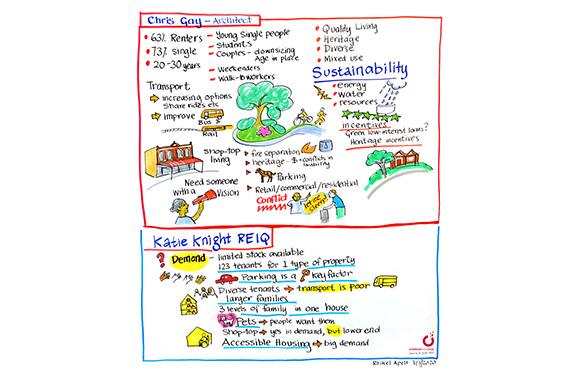 Chris Gay - Architect
• 63% Renters
• 73% single
• 20-30 years
- Young Single people
- Students
- Couples - downsizing
Age in place
- Weekenders
- Walk-to workers
• Quality Living
• Heritage
• Diverse
• Mixed use
Sustainability
energy
water
resources
incentives
Green low-interest loans?
Heritage incentives
Transport
increasing options
Share rides etc
improve
Bus &
Rail
Shop-top
living
fire separation
heritage
Parking
Retail/commercial/residential
Conflict
let me
sleep!
Need someone
with a Vision
Katie Knight REIQ
? Demand - limited stock available
123 tenants for 1 type of property
Parking is a Key factor
Diverse tenants → transport is poor
larger families
3 levels of family in one house
Pets → people want them
Shop-top → yes in demand, but lower end
Accessible Housing → big demand
Rachel Apelt